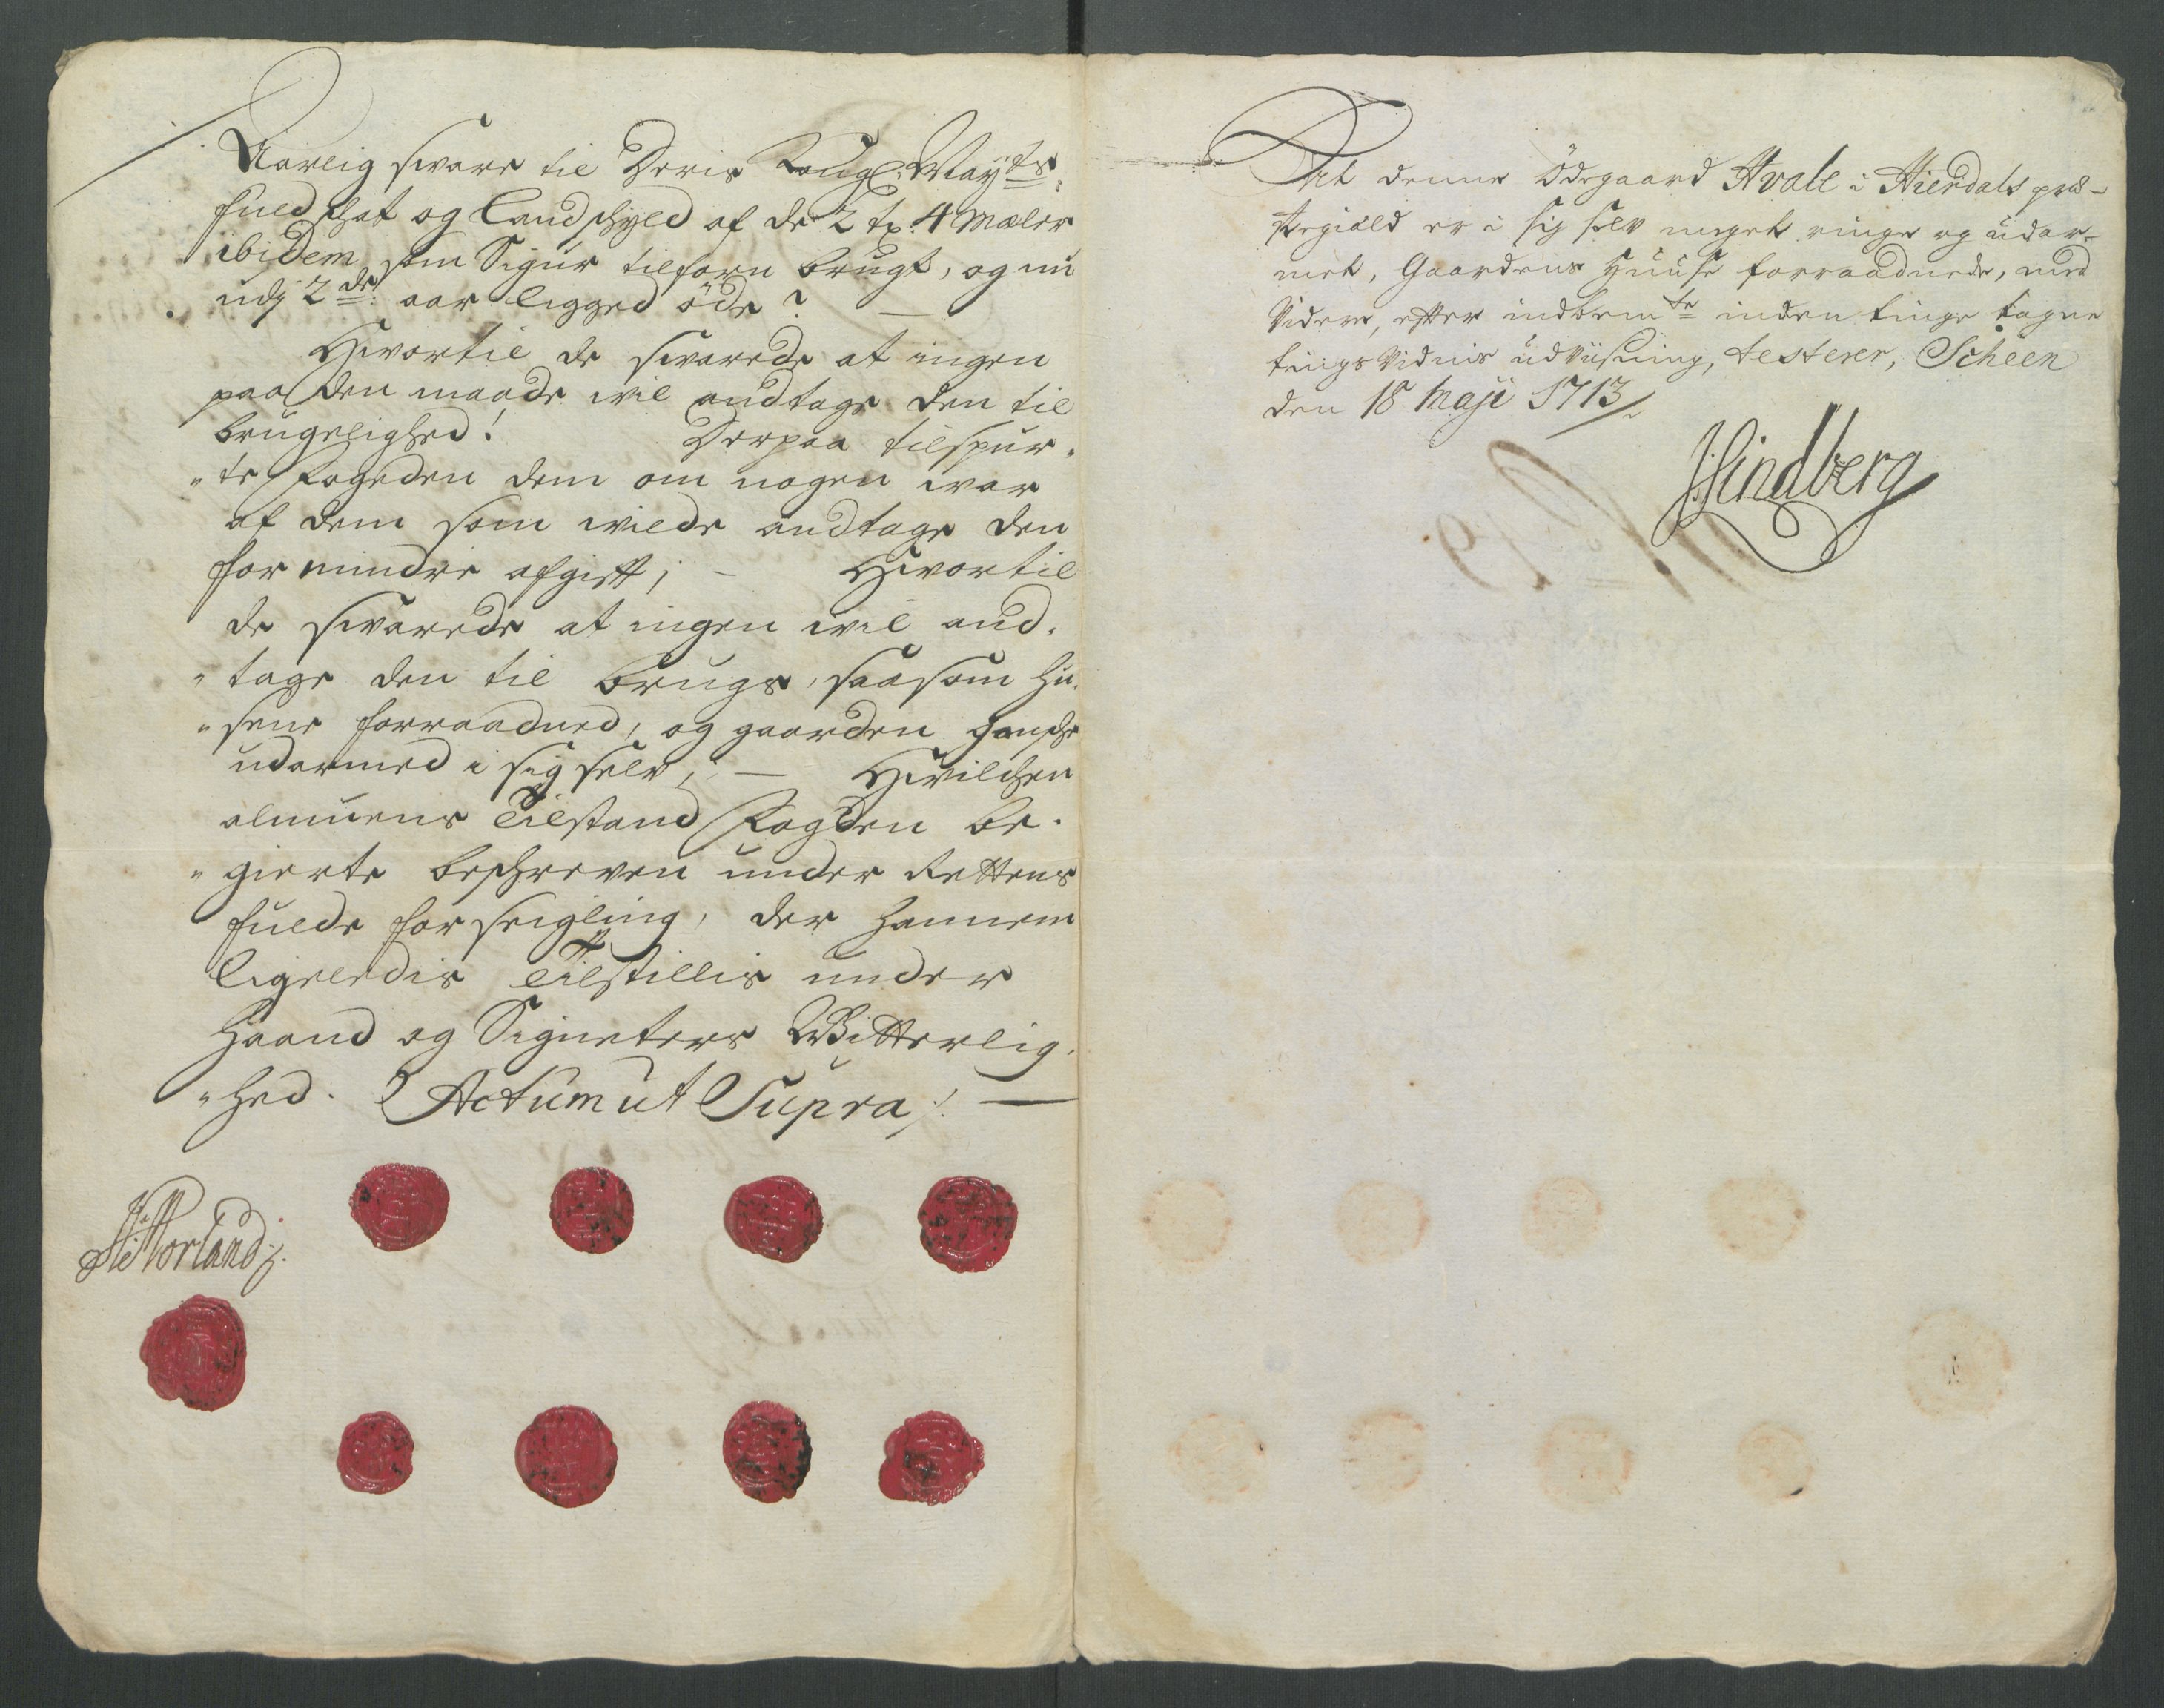 Aarlig svare til Deris Kongl: Mayts:
fuld skat og Landschyld af de 2 tr. 4 Mæler
ibidem som Sigur tilforn brugt, og nu
udj 2de: aar ligged öde? —
Hvortil de svarede at ingen
paa den maade wil andtage den til
brugelighed! Derpaa tilspur-
"te Fogeden dem om nogen war
af dem som wilde andtage den
for mindre afgift; — Hvortil
de svarede at ingen wil and-
"tage den til brugs, saasom hu-
"sene forraadned, og gaarden gansche
udarmed i sig selv; — Hvilchen
almuens Tilstand Fogden be-
"gierte beschreven under Rettens
fulde forseigling, der hannem
ligeledis Tilstillis under
Haand og Signeters Witterlig-
"hed. Actum ut Supra ∕. —
Norland
At denne Ödegaard Hvale i Hierdals præ-
stegiæld er i sig selv meget ringe og udar-
met, Gaardens Huuse forraadnede, med
Videre, efter indbemte inden tinge tagne
tings Vidnis udviisning, testerer, Scheen
den 18 Maji 1713 ∕.
Lindberg
No 19